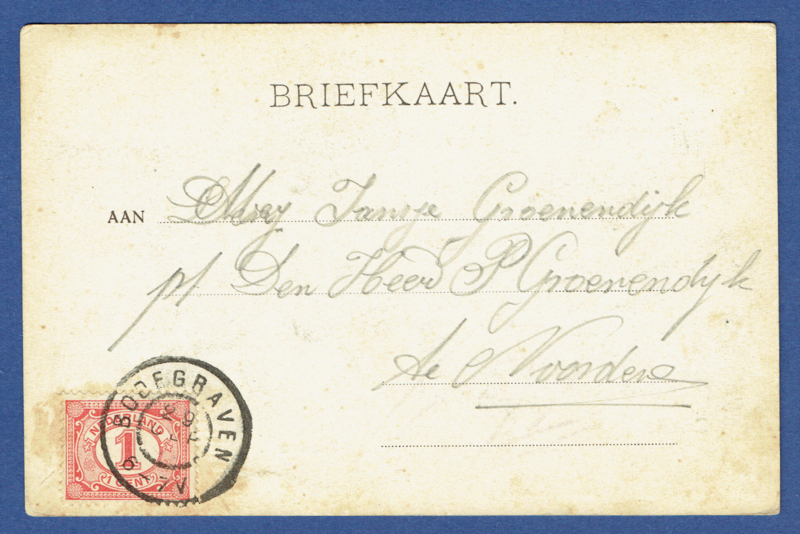 BRIEFKAART.
AAN Mej Jansje Groenendijk
p/ Den Heer P Groenendyk
te Noorden
BODEGRAVEN
NEDERLAND
1
1 CENT